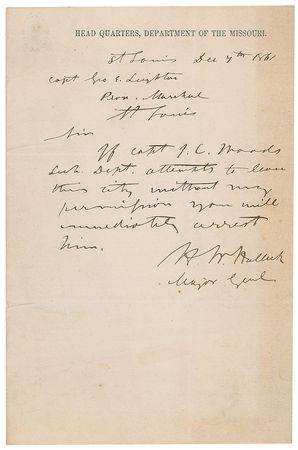 HEAD QUARTERS, DEPARTMENT OF THE MISSOURI.
St Louis Dec 7th 1861
Capt Geo E. Leighton
Prov. Marshal
St Louis
Sir
If Capt J. C. Woods
Sub. Dept. attempts to leave
this city without my
permission you will
immediately arrest
him.
H. W. Halleck
Major Genl